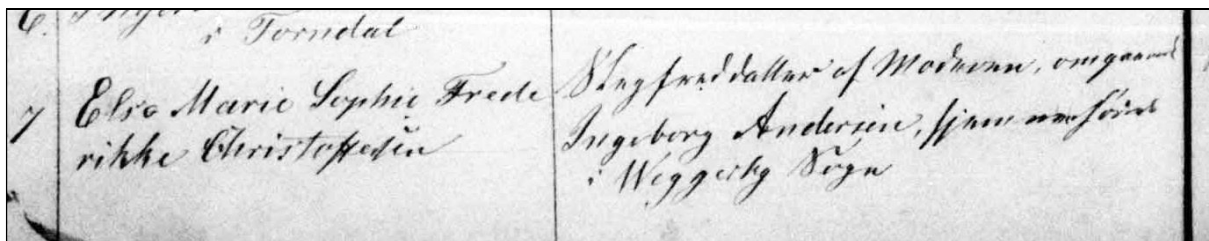 i Torndal
7 Else Marie Sophie Frede
rikke Christoffersen
Slegfreddatter af Moderen, omgaaende
Ingeborg Andersen, hjemmehørende
i Weggerby Sogn